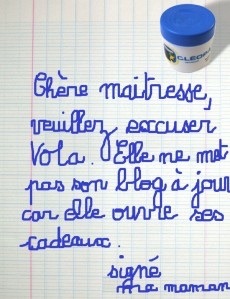 CLÉOPÂ
Chère maitresse,
veuillez excuser
Vola. Elle ne met
pas son blog à jour
car elle ouvre ses
cadeaux.
signé
Ma maman